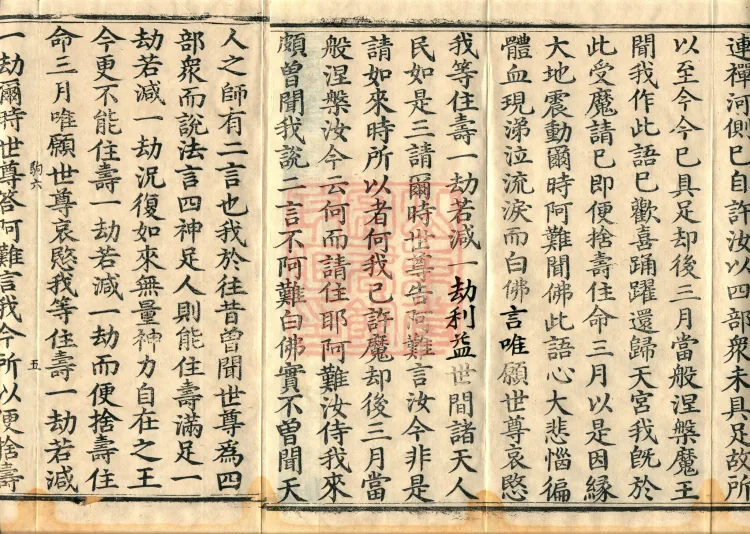 連禪河側已自許汝以四部衆未具足故所
以至今今已具足却後三月當般涅槃魔王
聞我作此語已歡喜踊躍還歸天宮我旣於
此受魔請已即便捨壽住命三月以是因緣
大地震動爾時阿難聞佛此語心大悲惱徧
體血現涕泣流淚而白佛言唯願世尊哀愍
我等住壽一劫若減一劫利益世間諸天人
民如是三請爾時世尊告阿難言汝今非是
請如來時所以者何我已許魔却後三月當
般涅槃汝今云何而請住耶阿難汝侍我來
頗曾聞我說二言不阿難白佛實不曾聞天
人之師有二言也我於往昔曾聞世尊爲四
部衆而說法言四神足人則能住壽滿足一
劫若減一劫況復如來無量神力自在之王
今更不能住壽一劫若減一劫而便捨壽住
命三月唯願世尊哀愍我等住壽一劫若減
駒六 五
一劫爾時世尊答阿難言我今所以便捨壽